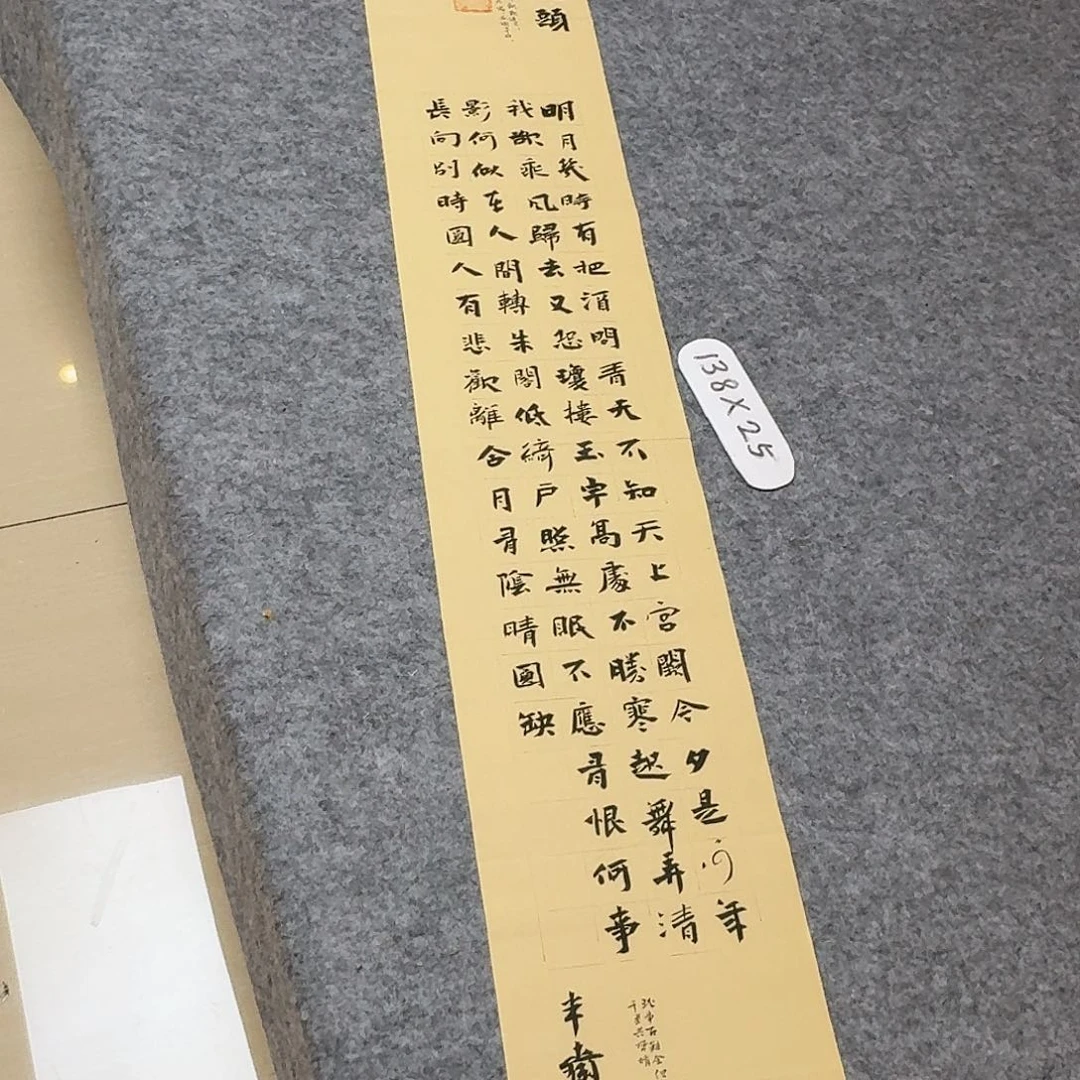 頭
明月幾時有把酒問青天不知天上宮闕今夕是何年
我欲乘風歸去又恐瓊樓玉宇高處不勝寒起舞弄清
影何似在人間轉朱閣低綺戶照無眠不應有恨何事
長向別時圓人有悲歡離合月有陰晴圓缺
138X25